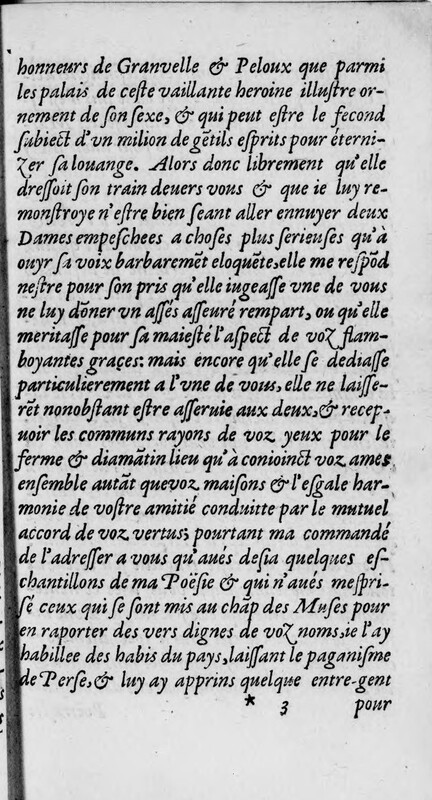 honneurs de Granvelle & Peloux que parmi
les palais de ceſte vaillante heroine illuſtre or-
nement de ſon ſexe, & qui peut eſtre le fecond
ſubiect d'vn milion de gētils eſprits pour éterni-
zer ſa louange. Alors donc librement qu'elle
dreſſoit ſon train deuers vous & que ie luy re-
monſtroye n'eſtre bien ſeant aller ennuyer deux
Dames empeſchees a choſes plus ſerieuſes qu'à
ouyr ſa voix barbaremēt eloquēte, elle me reſpōd
neſtre pour ſon pris qu'elle iugeaſſe vne de vous
ne luy dōner vn aſſés aſſeuré rempart, ou qu'elle
meritaſſe pour ſa maieſté l'aſpect de voz flam-
boyantes graçes: mais encore qu'elle ſe dediaſſe
particulierement a l'vne de vous, elle ne laiſſe-
rēt nonobſtant eſtre aſſeruie aux deux, & recep-
uoir les communs rayons de voz yeux pour le
ferme & diamātin lieu qu'à conioinct voz ames
enſemble autāt que voz maiſons & l'eſgale har-
monie de voſtre amitié conduitte par le mutuel
accord de voz vertus; pourtant ma commandé
de l'adreſſer a vous qu'aués deſia quelques eſ-
chantillons de ma Poëſie & qui n'aués meſpri-
ſé ceux qui ſe ſont mis au chāp des Muſes pour
en raporter des vers dignes de voz noms, ie l'ay
habillee des habis du pays, laiſſant le paganiſme
de Perſe, & luy ay apprins quelque entre-gent
* 3 pour